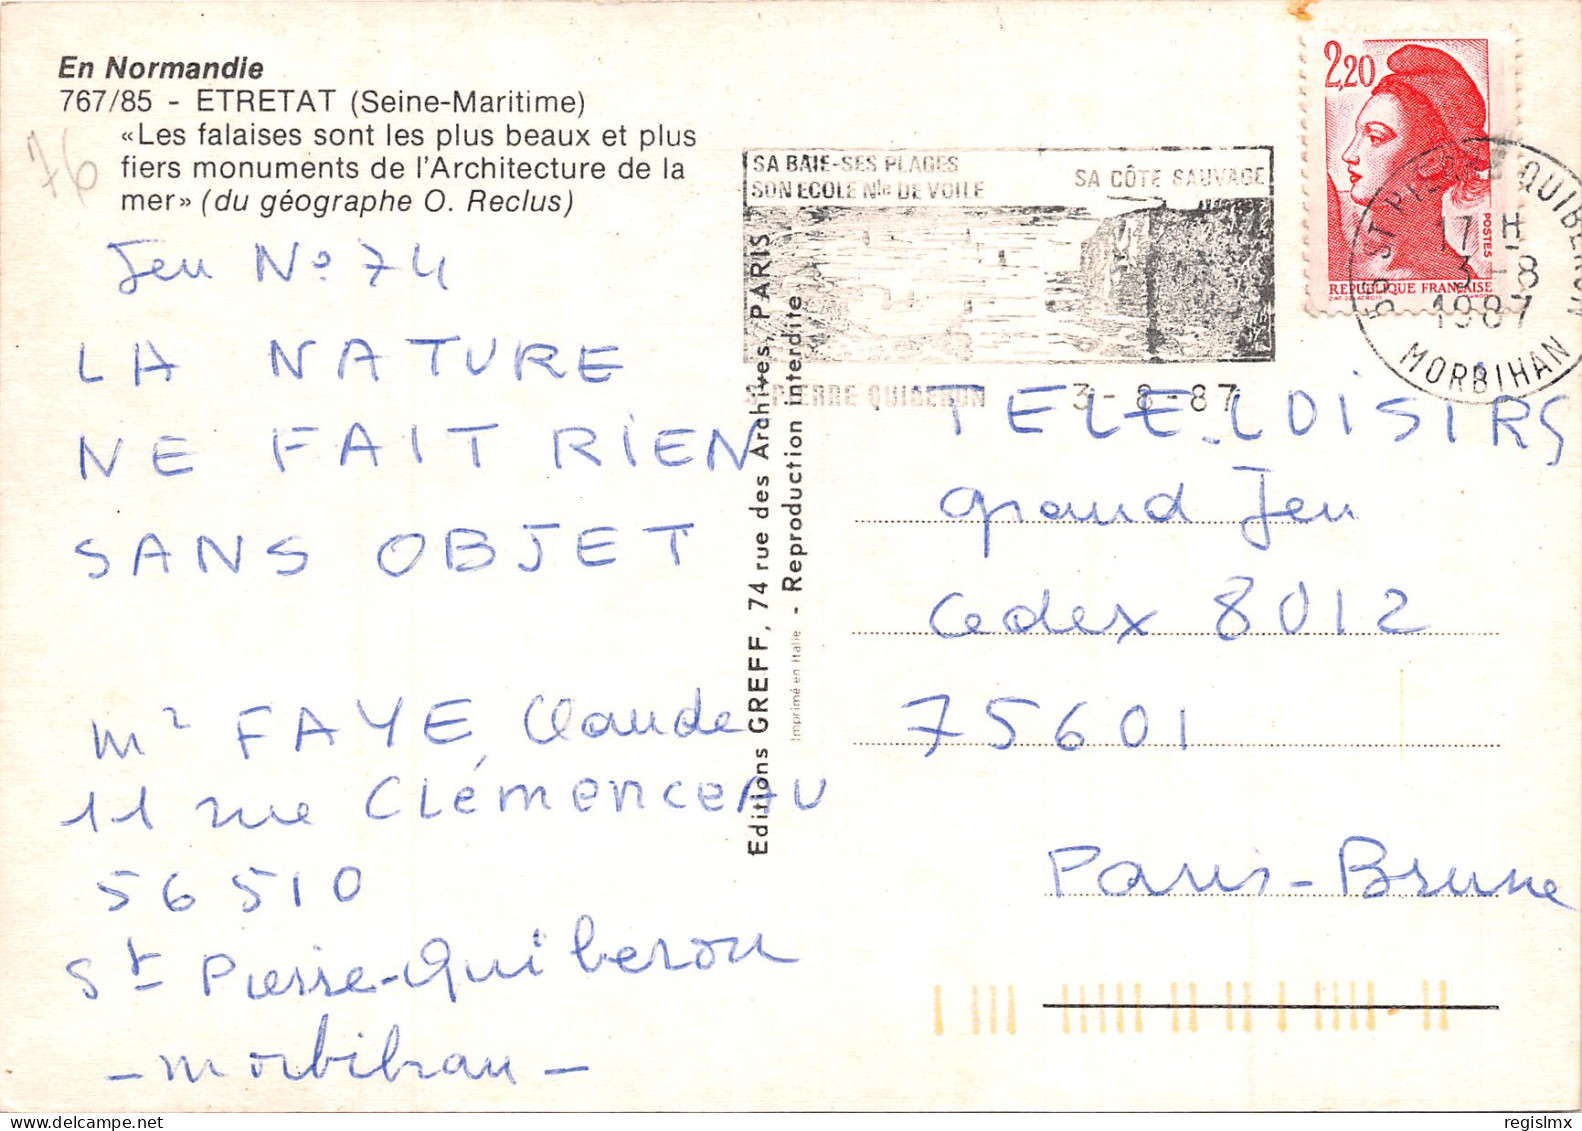 En Normandie
767/85 - ETRETAT (Seine-Maritime)
«Les falaises sont les plus beaux et plus
fiers monuments de l'Architecture de la
mer» (du géographe O. Reclus)
76
Jeu No 74
LA NATURE
NE FAIT RIEN
SANS OBJET
Mr FAYE Claude
11 rue CLémenceAU
56510
St Pierre-Quiberon
- Morbihan -
Editions GREFF, 74 rue des Archives, PARIS
Imprimé en Italie - Reproduction interdite
SA BAIE-SES PLAGES
SON ECOLE Nle DE VOILE
SA CÔTE SAUVAGE
ST PIERRE QUIBERON
3-8-87
2,20
POSTES
REPUBLIQUE FRANÇAISE
56 ST PIERRE QUIBERON
17 H
3-8
1987
MORBIHAN
TELE.LOISIRS
grand Jeu
Cedex 8012
75601
Paris-Brune
www.delcampe.net
regislmx